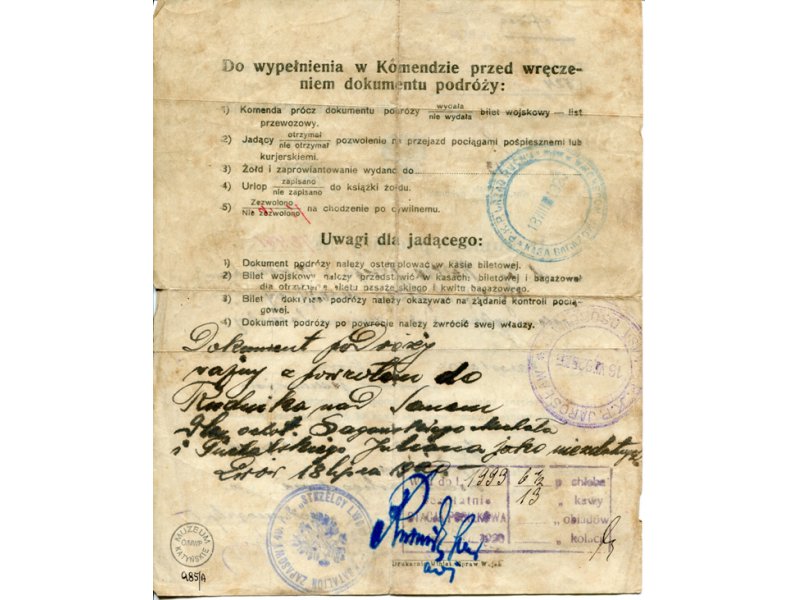 Do wypełnienia w Komendzie przed wręcze-
niem dokumentu podróży:
1) Komenda prócz dokumentu podróży wydała / nie wydała bilet wojskowy — list
przewozowy.
2) Jadący otrzymał / nie otrzymał pozwolenie na przejazd pociągami pośpiesznemi lub
kurjerskiemi.
3) Żołd i zaprowiantowanie wydano do
4) Urlop zapisano / nie zapisano do książki żołdu.
5) Zezwolono / Nie zezwolono na chodzenie po cywilnemu.
Uwagi dla jadącego:
1) Dokument podróży należy ostemplować w kasie biletowej.
2) Bilet wojskowy należy przedstawić w kasach: biletowej i bagażowej
dla otrzymania biletu pasażerskiego i kwitu bagażowego.
3) Bilet i dokument podróży należy okazywać na żądanie kontroli pocią-
gowej.
4) Dokument podróży po powrocie należy zwrócić swej władzy.
Dokument podróży
ważny z powrotem do
Rudnika nad Sanem
i Juljana jako
Lwów 18 lipca
1393 6 1/2 chleba
13 " kawy
STACJA
" obiadów
1920 " kolacji
STRZELCY LW
BATALJON ZAPASOWY
JAROSŁAW
KASA
Drukarnia Minist. Spraw Wojsk
MUZEUM
OMWP
KATYŃSKIE
985/A